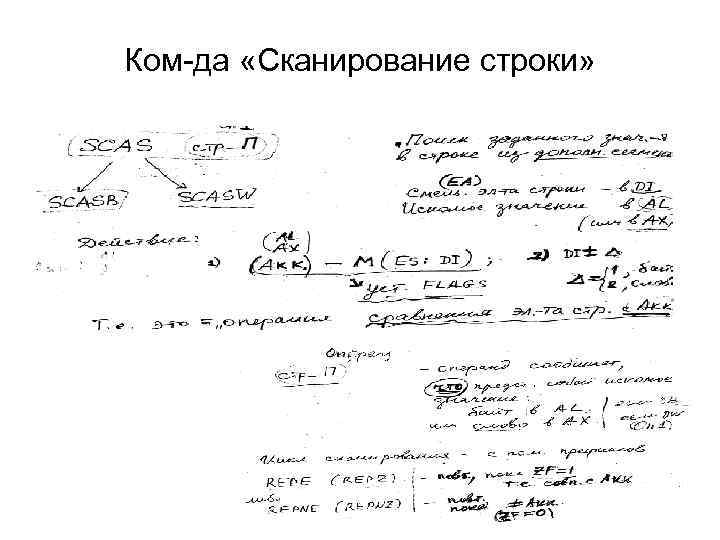 Ком-да «Сканирование строки»
SCAS стр-П
SCASB SCASW
• Поиск заданного знач-я
в строке из дополн. сегмента
(EA)
Смещ. эл-та строки – в DI
Искомое значение в AL
(или в AX)
Действие:
1) (AL AX) (АКК.) – M (ES: DI) ; 2) DI ± Δ
уст. FLAGS
Δ = {1, байт.
2, слов.
Т.е. это = „операция сравнения эл-та стр. с АКК
Операнд
– операнд сообщает,
что предст. собой искомое
значение:
байт в AL
или слово в AX
Цикл сканирования – с пом. префиксов
REPE (REPZ) – повт, пока ZF=1
т.е. совп. с АКК
либо
REPNE (REPNZ) – повт. пока ≠ АКК
(ZF=0)